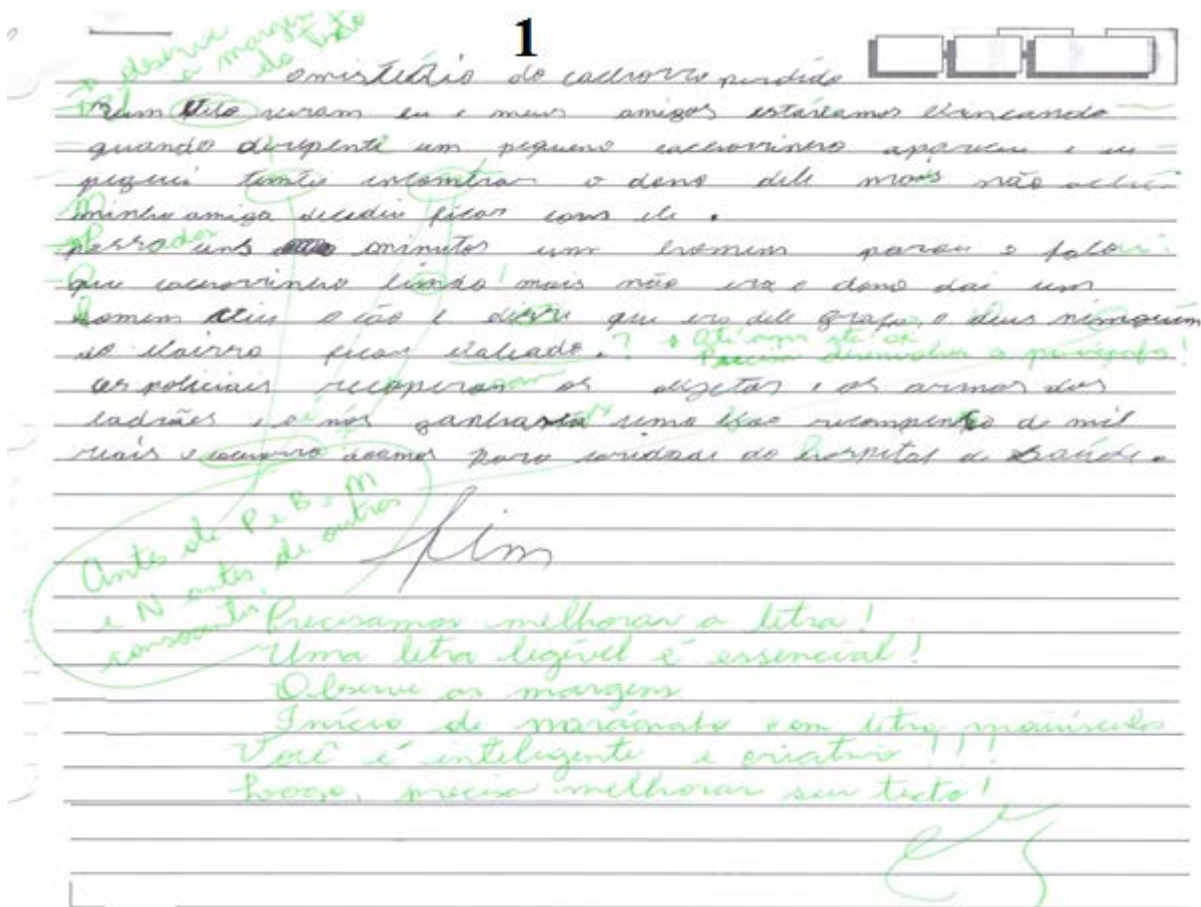 1
observe
a margem
do texto
o mistério do cachorro perdido
Num belo veram eu e meus amigos estavamos brincando
quando direpente um pequeno cachorrinho apareceu e eu
peguei temtei emcomtrar o dono dele mais não achei
minha amiga decediu ficar com ele.
Passados uns minutos um homem parou e falou:
Que cachorrinho limdo! mais não era o dono dai um
homem viu o cão e disse que era dele graças o deus nimguem
do bairro ficou baleado.? Até aqui está ok
Precisa desenvolver o parágrafo!
os policiais recuperam os objetos e as armas dos
ladrães e nós ganhamos uma recompensa de mil
reais e doamos para caridade do hospital de saúde.
fim
Antes de P e B = M
e N antes de outras
consoantes.
Precisamos melhorar a letra!
Uma letra legível é essencial!
Observe as margens
Início de parágrafo com letra maiúscula
Você é inteligente e criativo!!!
Logo, precisa melhorar seu texto!